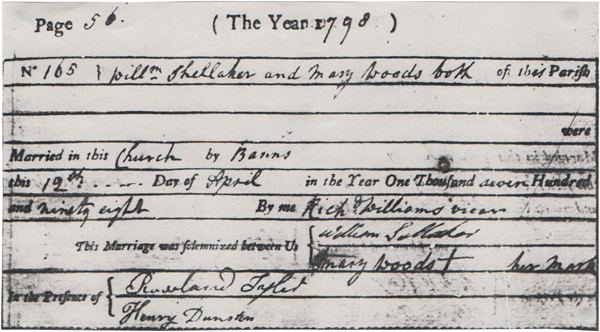 Page 56 ( The Year 1798 )
No 165 } Willm Shellaker and Mary Woods both of this Parish
were
Married in this Church by Banns
this 19th Day of April in the Year One Thousand seven Hundred
and ninety eight By me Richd Williams vicar
This Marriage was solemnized between Us { William
Mary Woods + her Mark
In the Presence of { Rowland
Henry